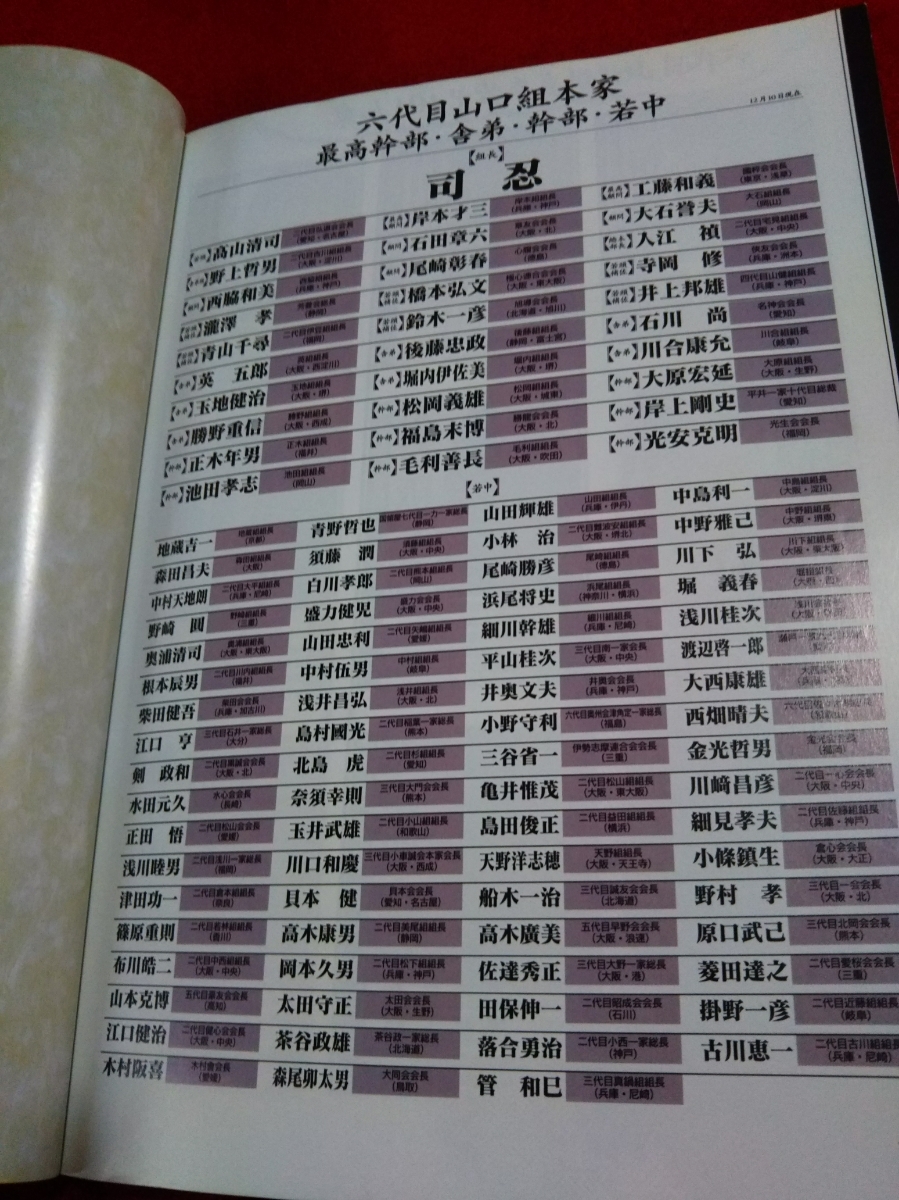 六代目山口組本家
最高幹部・舎弟・幹部・若中
12月10日現在
【組長】
司 忍
髙山清司 二代目弘道会会長(愛知・名古屋) 岸本才三 岸本組組長(兵庫・神戸) 工藤和義 國粹会会長(東京・浅草)
野上哲男 二代目吉川組組長(大阪・淀川) 【顧問】石田章六 章友会会長(大阪・北) 【顧問】大石誉夫 大石組組長(岡山)
【顧問】西脇和美 西脇組組長(兵庫・神戸) 【顧問】尾崎彰春 心腹会会長(徳島) 入江 禎 二代目宅見組組長(大阪・中央)
瀧澤 孝 芳菱会総長(静岡) 橋本弘文 極心連合会会長(大阪・東大阪) 寺岡 修 俠友会会長(兵庫・洲本)
青山千尋 二代目伊豆組組長(福岡) 鈴木一彦 旭導会会長(北海道・旭川) 井上邦雄 四代目山健組組長(兵庫・神戸)
【舎弟】英 五郎 英組組長(大阪・西淀川) 【舎弟】後藤忠政 後藤組組長(静岡・富士宮) 【舎弟】石川 尚 名神会会長(愛知)
【舎弟】玉地健治 玉地組組長(大阪・堺) 【舎弟】堀内伊佐美 堀内組組長(大阪・堺) 【舎弟】川合康允 川合組組長(岐阜)
【舎弟】勝野重信 勝野組組長(大阪・西成) 【幹部】松岡義雄 松岡組組長(大阪・城東) 【幹部】大原宏延 大原組組長(大阪・生野)
【幹部】正木年男 正木組組長(福井) 【幹部】福島末博 勝龍会会長(大阪・北) 【幹部】岸上剛史 平井一家十代目総裁(愛知)
【幹部】池田孝志 池田組組長(岡山) 【幹部】毛利善長 毛利組組長(大阪・吹田) 【幹部】光安克明 光生会会長(福岡)
【若中】
地蔵吉一 地蔵組組長(京都) 青野哲也 國領屋七代目一力一家総長(静岡) 山田輝雄 山田組組長(兵庫・伊丹) 中島利一 中島組組長(大阪・淀川)
森田昌夫 森田組組長(大阪) 須藤 潤 須藤組組長(大阪・中央) 小林 治 二代目難波安組組長(大阪・堺北) 中野雅己 中野組組長(大阪・堺東)
中村天地朗 二代目大平組組長(兵庫・尼崎) 白川孝郎 二代目熊本組組長(岡山) 尾崎勝彦 尾崎組組長(徳島) 川下 弘 川下組組長(大阪・東大阪)
野崎 圓 野崎組組長(三重) 盛力健児 盛力会会長(大阪・中央) 浜尾将史 浜尾組組長(神奈川・横浜) 堀 義春
奥浦清司 奥浦組組長(大阪・東大阪) 山田忠利 二代目矢嶋組組長(愛媛) 細川幹雄 細川組組長(兵庫・尼崎) 浅川桂次
根本辰男 二代目川内組組長(福井) 中村伍男 中村組組長(岐阜) 平山桂次 三代目南一家会長(大阪・中央) 渡辺啓一郎
柴田健吾 柴田会会長(兵庫・加古川) 浅井昌弘 浅井組組長(大阪・北) 井奥文夫 井奥会会長(兵庫・神戸) 大西康雄
江口 亨 三代目石井一家総長(大分) 島村國光 二代目稲葉一家総長(熊本) 小野守利 六代目奥州会津角定一家総長(福島) 西畑晴夫
剣 政和 二代目黒誠会会長(大阪・北) 北島 虎 二代目杉組組長(愛知) 三谷省一 伊勢志摩連合会会長(三重) 金光哲男
水田元久 水心会会長(長崎) 奈須幸則 三代目大門会会長(熊本) 亀井惟茂 二代目松山組組長(大阪・東大阪) 川﨑昌彦 二代目一心会会長(大阪・中央)
正田 悟 二代目松山会会長(愛媛) 玉井武雄 二代目小山組組長(和歌山) 島田俊正 二代目益田組組長(横浜) 細見孝夫 二代目佐藤組組長(兵庫・神戸)
浅川睦男 二代目浅川一家総長(福岡) 川口和慶 三代目小車誠会本家会長(大阪・西成) 天野洋志穂 天野組組長(大阪・天王寺) 小條鎮生 倉心会会長(大阪・大正)
津田功一 二代目倉本組組長(奈良) 貝本 健 貝本会会長(愛知・名古屋) 船木一治 三代目誠友会会長(北海道) 野村 孝 三代目一会会長(大阪・北)
篠原重則 二代目若林組組長(香川) 高木康男 二代目美尾組組長(静岡) 高木廣美 五代目早野会会長(大阪・浪速) 原口武己 三代目北岡会会長(熊本)
布川皓二 二代目中西組組長(大阪・中央) 岡本久男 二代目松下組組長(兵庫・神戸) 佐達秀正 三代目大野一家総長(大阪・港) 菱田達之 二代目愛桜会会長(三重)
山本克博 五代目豪友会会長(高知) 太田守正 太田会会長(大阪・生野) 田保伸一 二代目昭成会会長(石川) 掛野一彦 二代目近藤組組長(岐阜)
江口健治 二代目健心会会長(大阪・中央) 茶谷政雄 茶谷政一家総長(北海道) 落合勇治 二代目小西一家総長(神戸) 古川恵一 二代目古川組組長(兵庫・尼崎)
木村阪喜 木村會会長(愛媛) 森尾卯太男 大同会会長(鳥取) 管 和巳 三代目真鍋組組長(兵庫・尼崎)